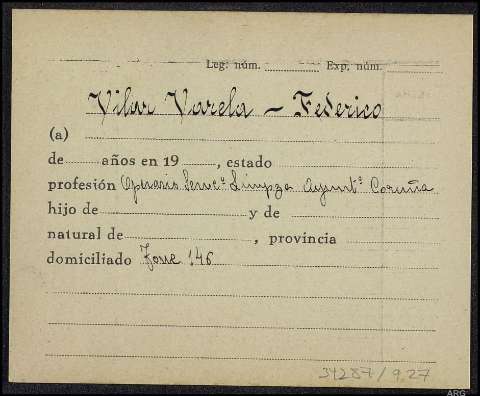 Leg: núm. Exp. núm.
Vilar Varela - Federico
(a)
de años en 19 , estado
profesión Operario Servcº Limpza Ayuntº Coruña
hijo de y de
natural de , provincia
domiciliado 146
34287/9,27
ARG